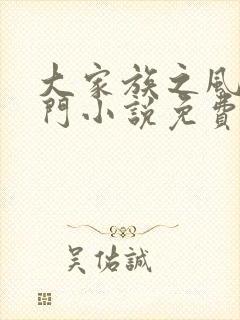 大家族之風
門小說免費
吳佑誠